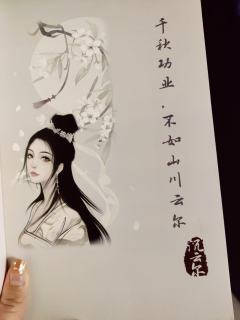 千秋功业，不如山川云尔
沉云尔